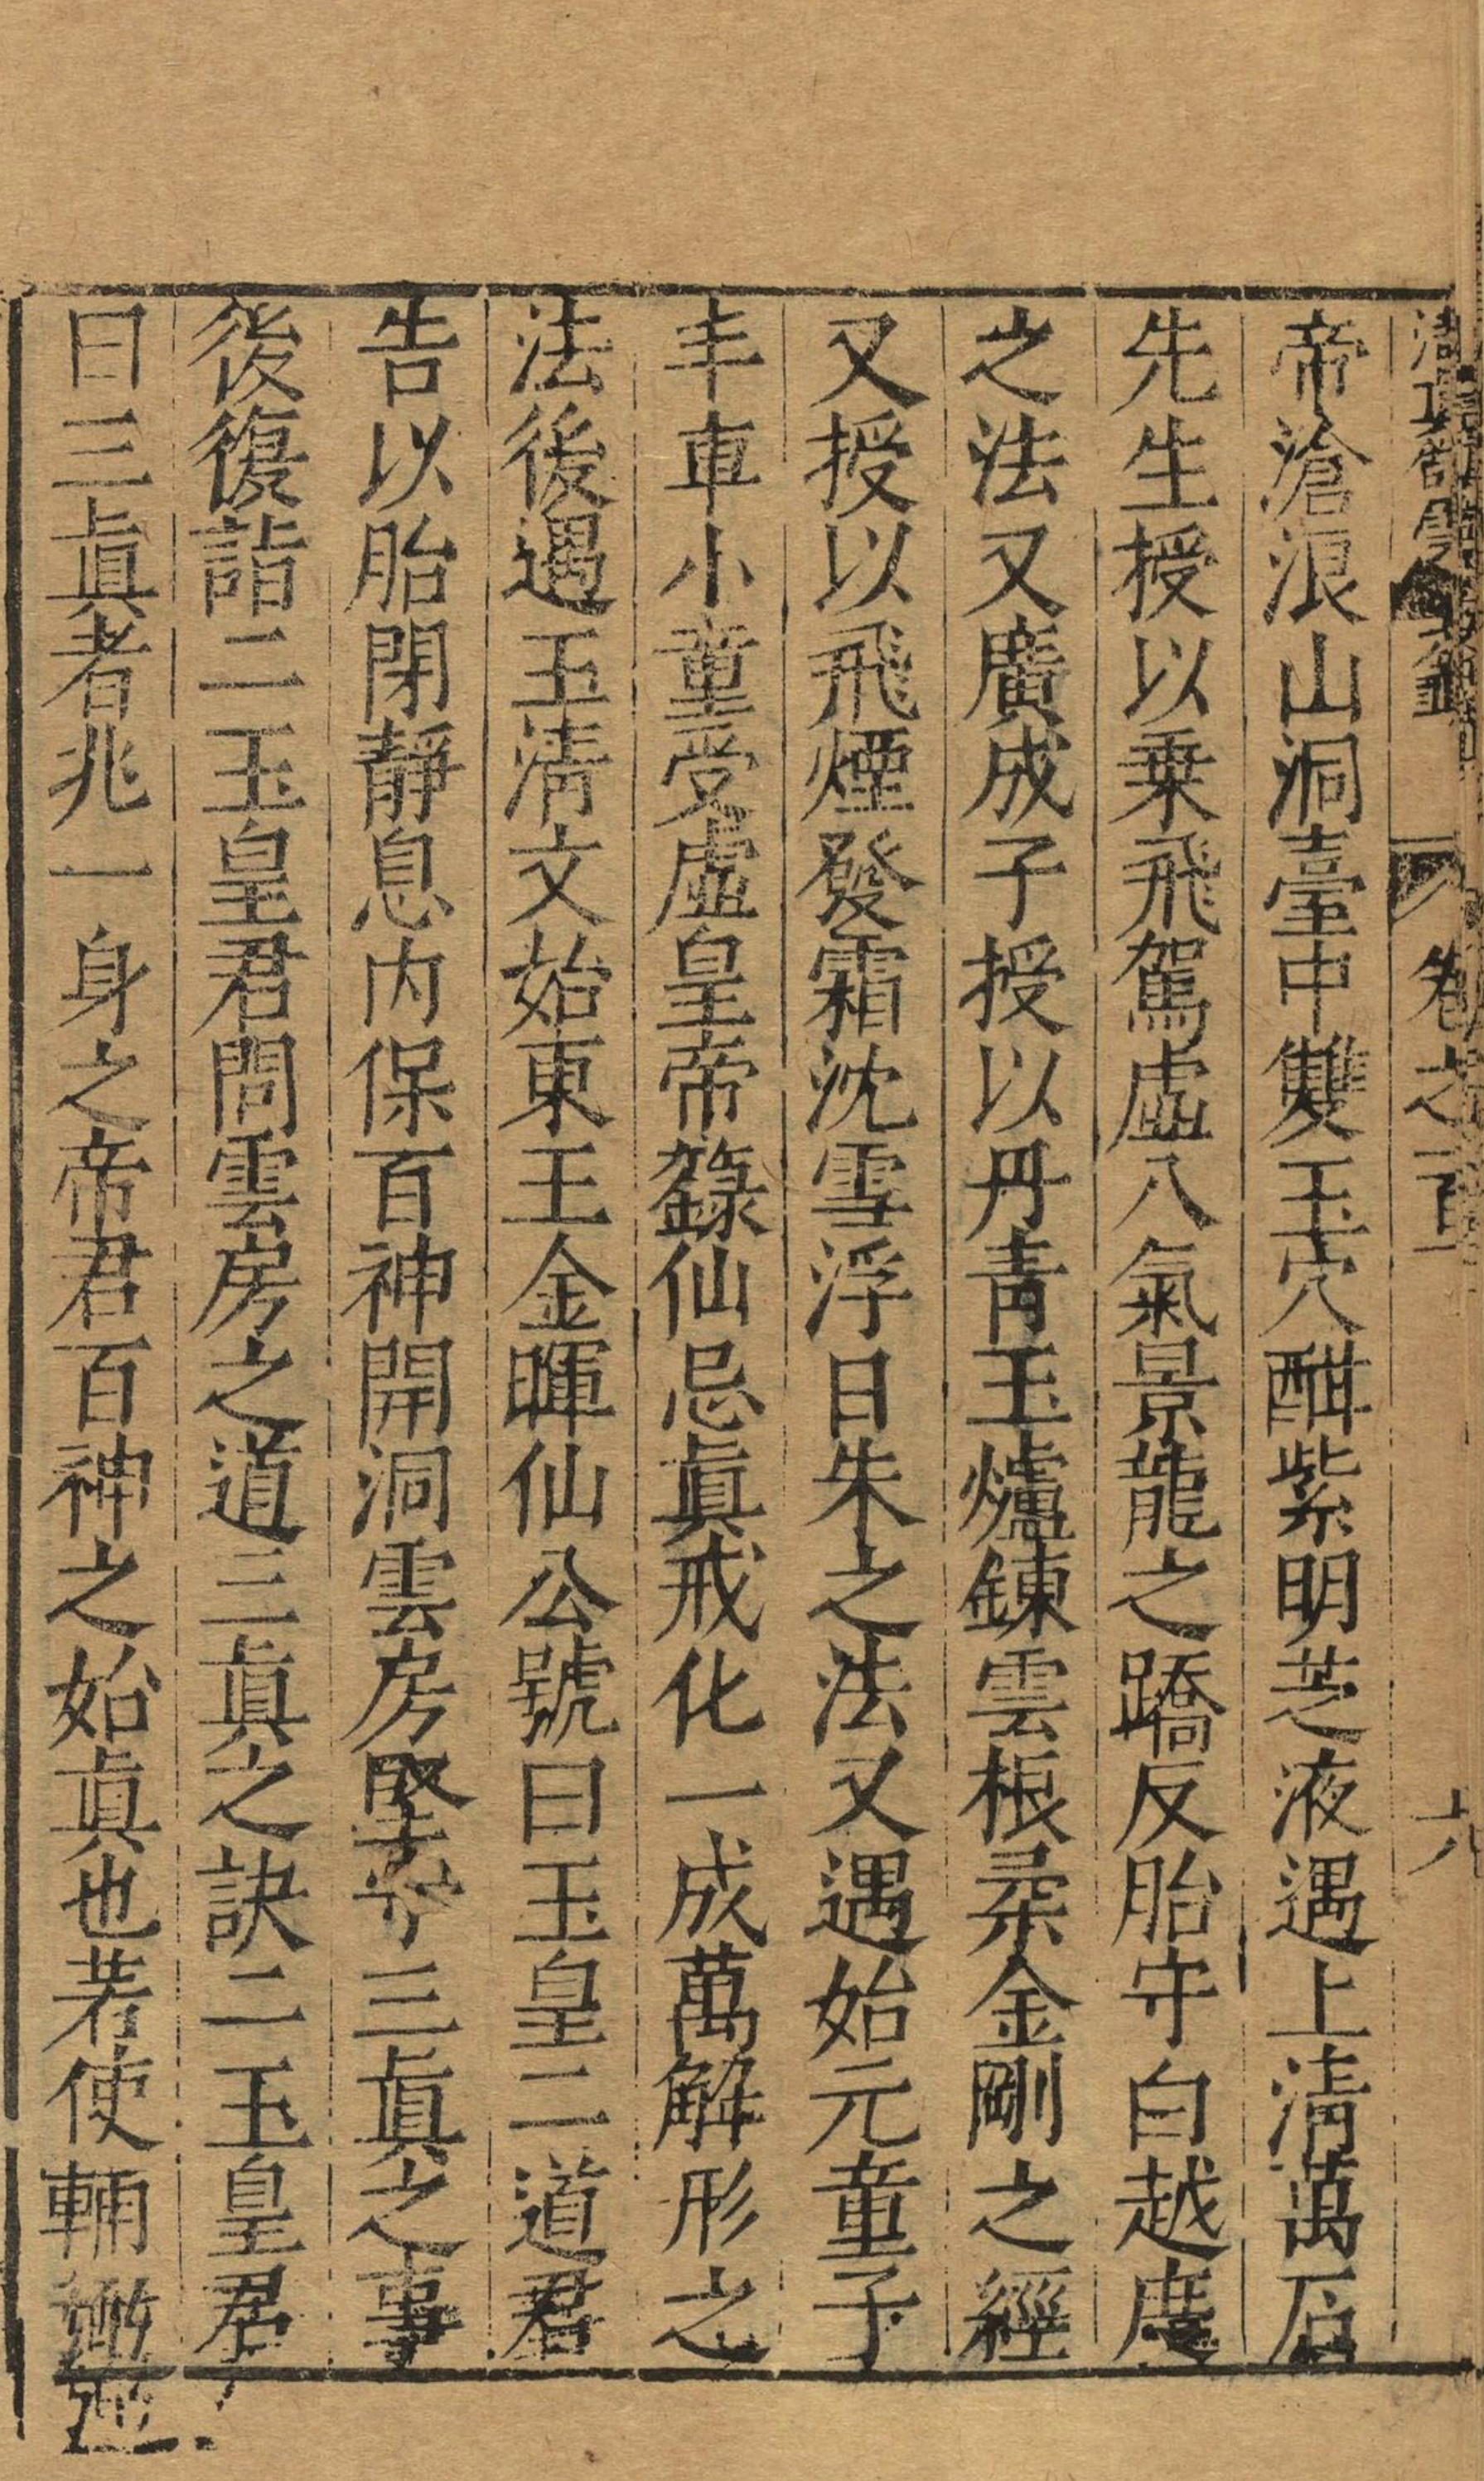 卷之一百一
帝滄浪山洞臺中雙玉穴酣紫明芝液遇上清萬石
先生授以乗飛駕虛八氣景龍之蹻反胎守白越度
之法又廣成子授以丹青玉爐鍊雲根柔金剛之經
又授以飛煙發霜沈雪浮日朱之法又遇始元童子
丰車小童受虛皇帝籙仙忌眞戒化一成萬解形之
法後遇玉清文始東王金暉仙公號曰玉皇二道君
告以胎閉靜息内保百神開洞雲房堅守三眞之事
後復詣二玉皇君問雲房之道三眞之訣二玉皇君
曰三眞者兆一身之帝君百神之始眞也若使輔